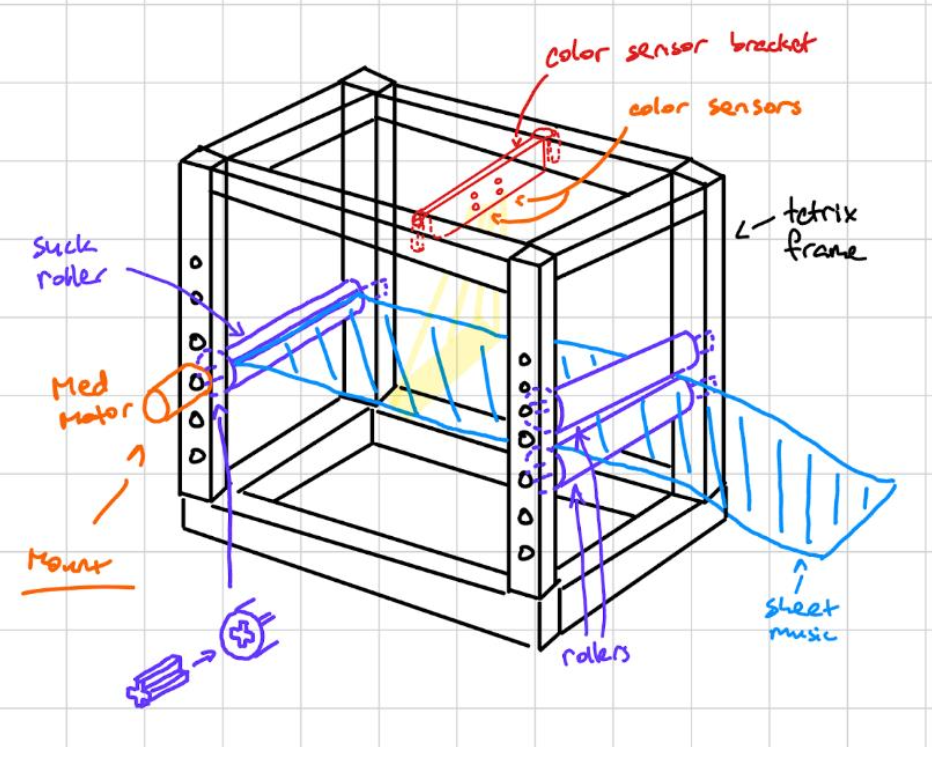 color sensor bracket
color sensors
tetrix
frame
suck
roller
Med
Motor
Mount
rollers
sheet
music